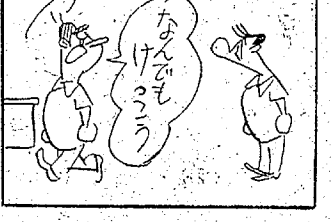 なんでも
けっこう